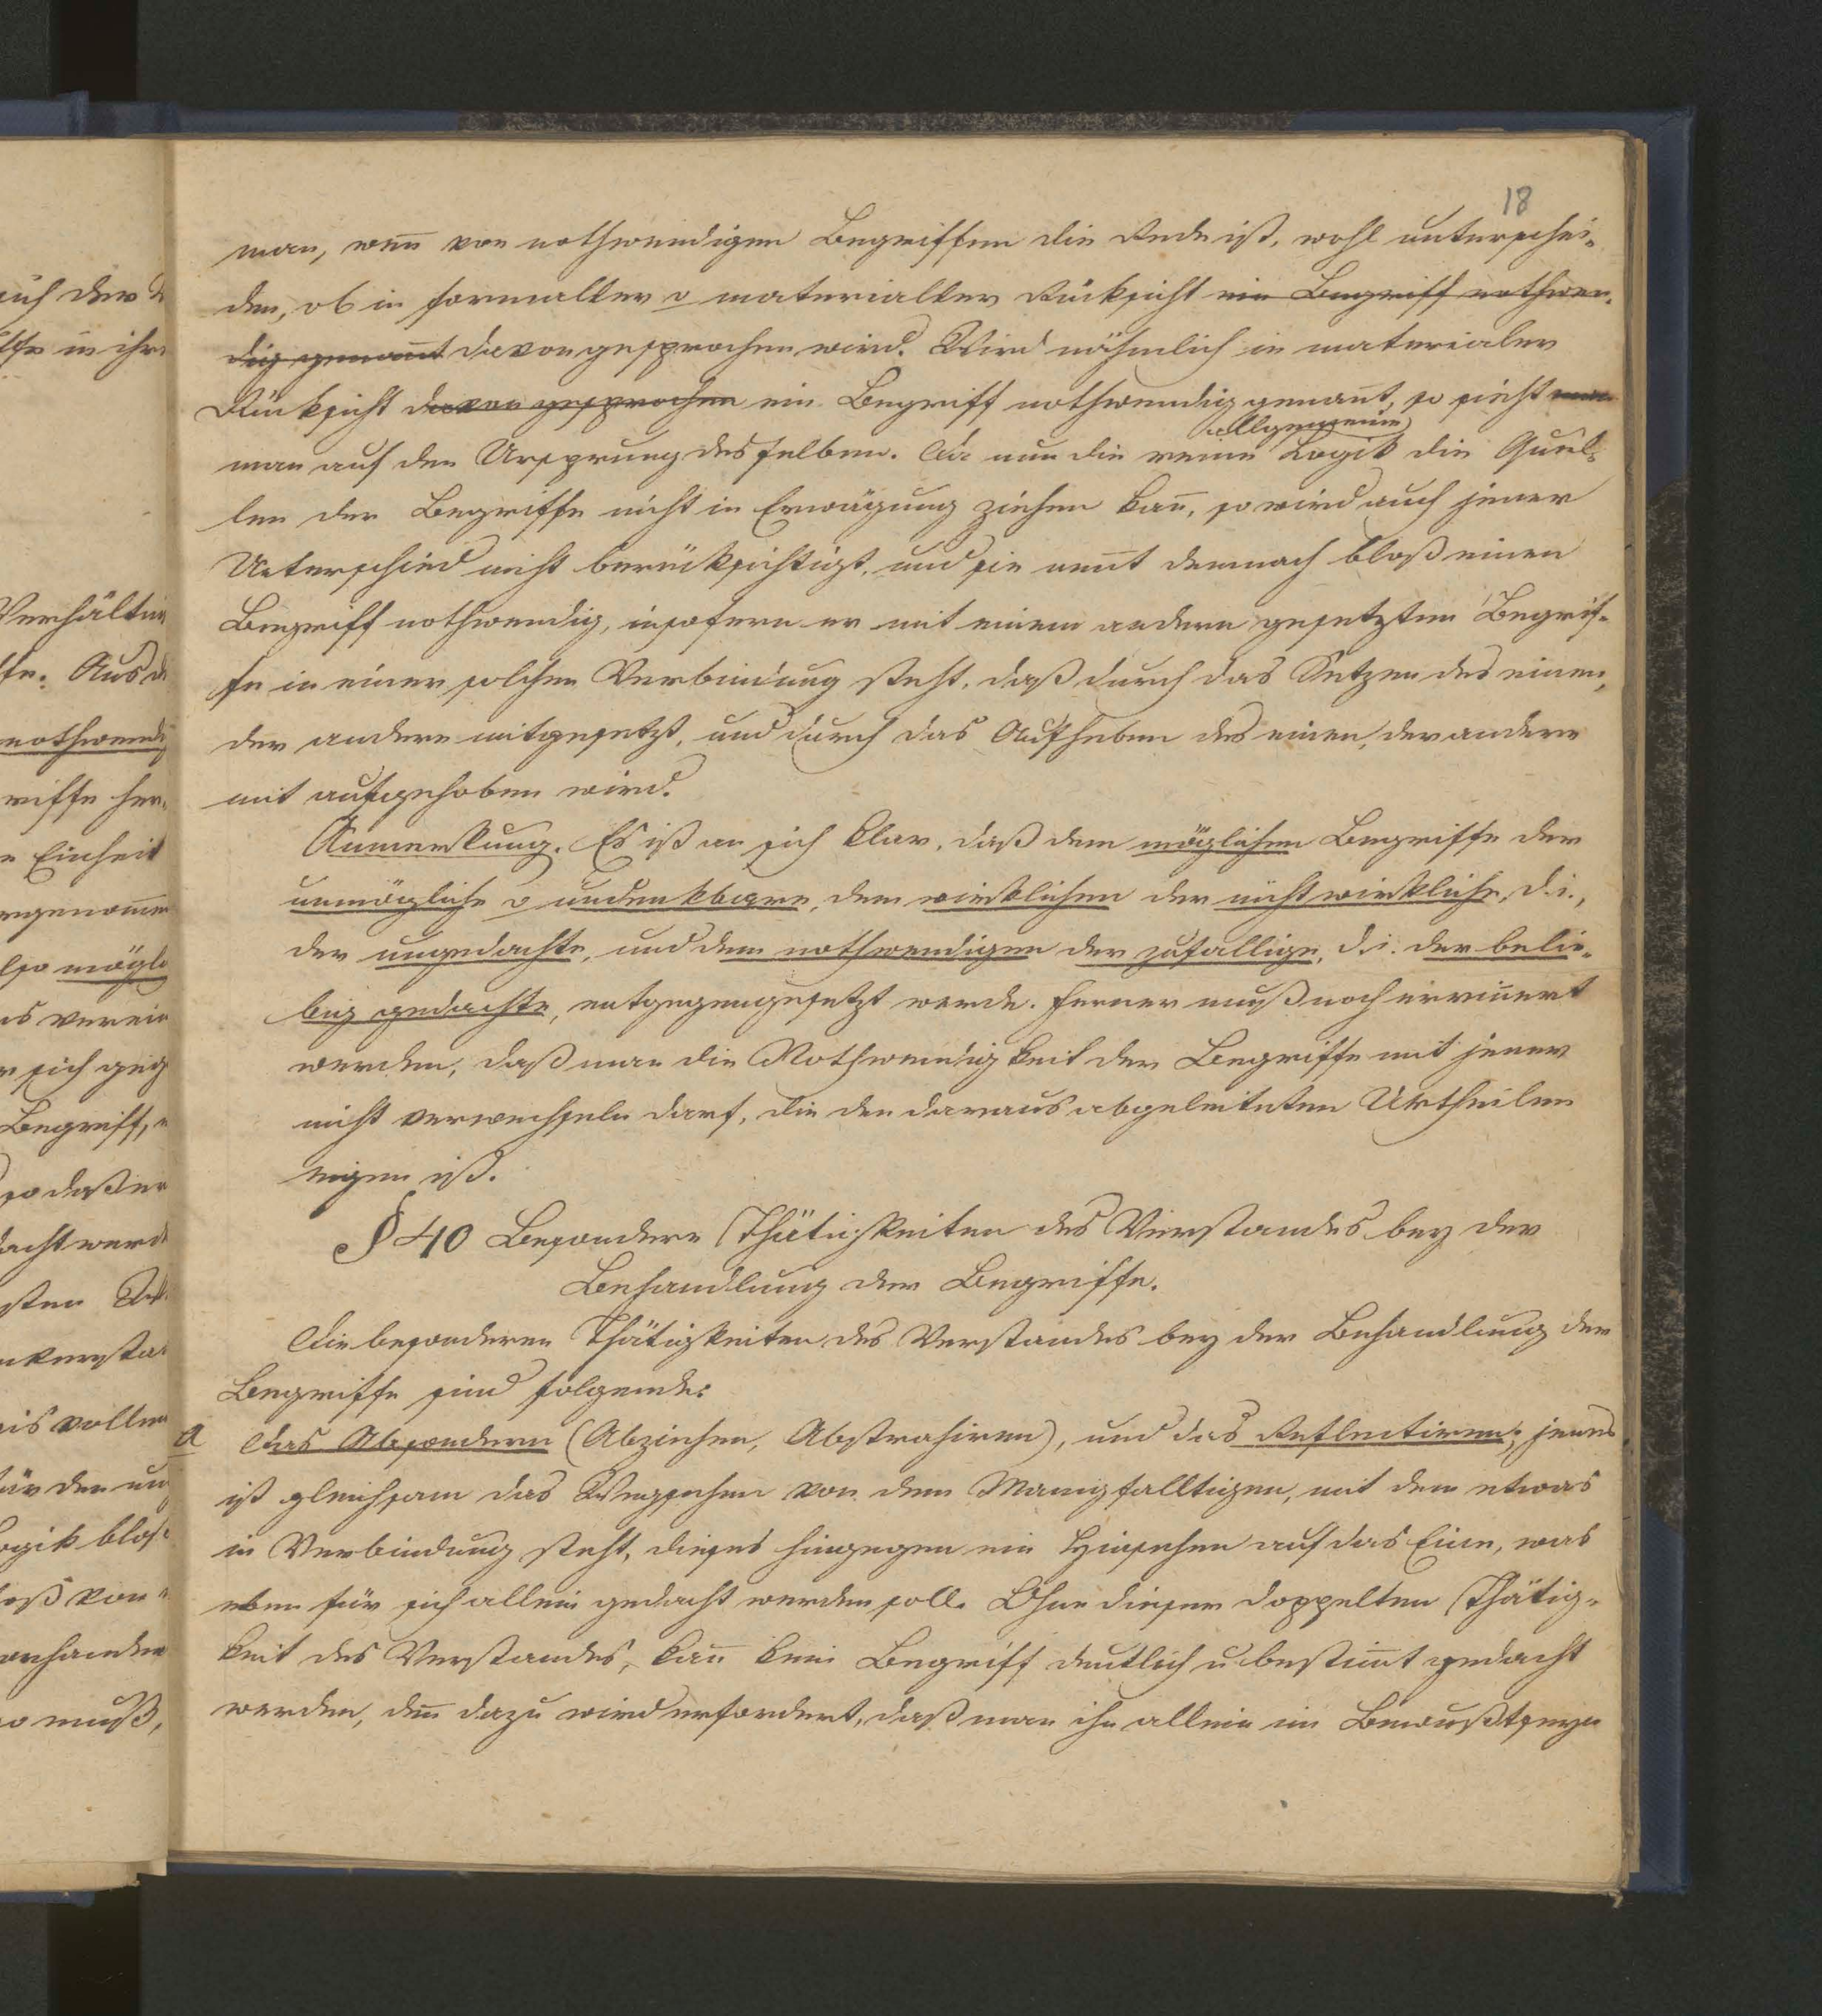 18
man, weñ von nothwendigen Begriffen die Rede ist, wohl unterschei-
den, ob in formaller o materialler Rücksicht ein Begriff nothwen-
dig genañt davon gesprochen wird. Wird nähmlich in materialer
Rücksicht davon gesprochen ein Begriff nothwendig genañt, so sieht man
allgemeine
man auf den Ursprung desselben. Da nun die reine Logik die Quel-
len der Begriffe nicht in Erwägung ziehen kañ, so wird auch jener
Unterschied nicht berücksichtigt, und sie neñt demnach bloß einen
Begriff nothwendig, insofern er mit einem andern gesetzten Begrif-
fe in einer solchen Verbindung steht, daß durch das Setzen des einen,
der andere mitgesetzt, und durch das Aufheben des einen, der andere
mit aufgehoben wird.
Anmerkung. Es ist an sich klar, daß dem möglichen Begriffe der
unmögliche o undenkbare, dem wirklichen der nicht wirkliche, d.i.,
der ungedachte, und dem nothwendigen der zufallige, d.i. der belie-
big gedachte, entgegengesetzt werde. Ferner muß noch eriñert
werden, daß man die Nothwendigkeit der Begriffe mit jener
nicht verwechseln darf, die den daraus abgeleiteten Urtheilen
eigen ist.
§ 40 Besondere Thätigkeiten des Verstandes bey der
Behandlung der Begriffe.
Die besonderen Thätigkeiten des Verstandes bey der Behandlung der
Begriffe sind folgende:
a Das Absondern (Abziehen, Abstrahiren), und das Reflectiren; jenes
ist gleichsam das Wegsehen von dem Manigfalltigen, mit dem etwas
in Verbindung steht, dieses hingegen ein Hinsehen auf das Eine, was
eben für sich allein gedacht werden soll. Ohne dieser doppelten Thätig-
keit des Verstandes, kañ kein Begriff deutlich u. bestim̄t gedacht
werden, deñ dazu wird erfordert, daß man ihn allein im Bewußtseyn